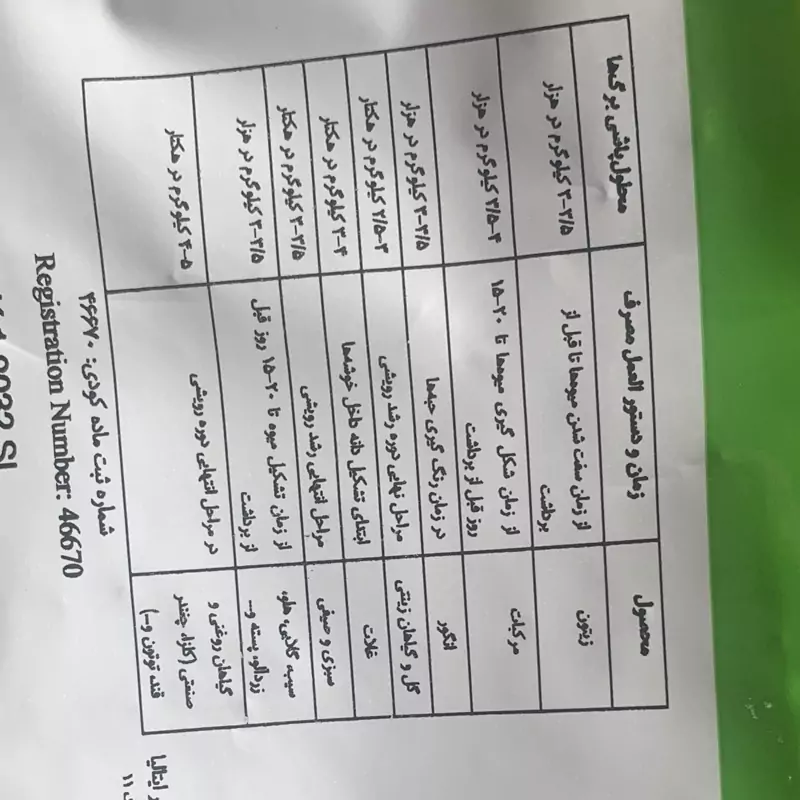 محصول	زمان و دستور العمل مصرف	محلول‌پاشی برگ‌ها
زیتون	از زمان سفت شدن میوه‌ها تا قبل از برداشت	۲-۲/۵ کیلوگرم در هزار
مرکبات	از زمان شکل گیری میوه‌ها تا ۲۰-۱۵ روز قبل از برداشت	۲/۵-۳ کیلوگرم در هزار
انگور	در زمان رنگ گیری حبه‌ها	۲-۲/۵ کیلوگرم در هزار
گل و گیاهان زینتی	مراحل نهایی دوره رشد رویشی	۲/۵-۳ کیلوگرم در هکتار
غلات	ابتدای تشکیل دانه داخل خوشه‌ها	۳-۴ کیلوگرم در هکتار
سبزی و صیفی	مراحل انتهایی رشد رویشی	۲-۲/۵ کیلوگرم در هکتار
سیب، گلابی، هلو، زردآلو، پسته و...	از زمان تشکیل میوه تا ۲۰-۱۵ روز قبل از برداشت	۲-۲/۵ کیلوگرم در هزار
گیاهان روغنی و صنعتی (کلزا، چغندر قند، توتون و...)	در مراحل انتهایی دوره رویشی	۴-۵ کیلوگرم در هکتار
شماره ثبت ماده کودی: ۴۶۶۷۰
Registration Number: 46670
ایتالیا
۱۱